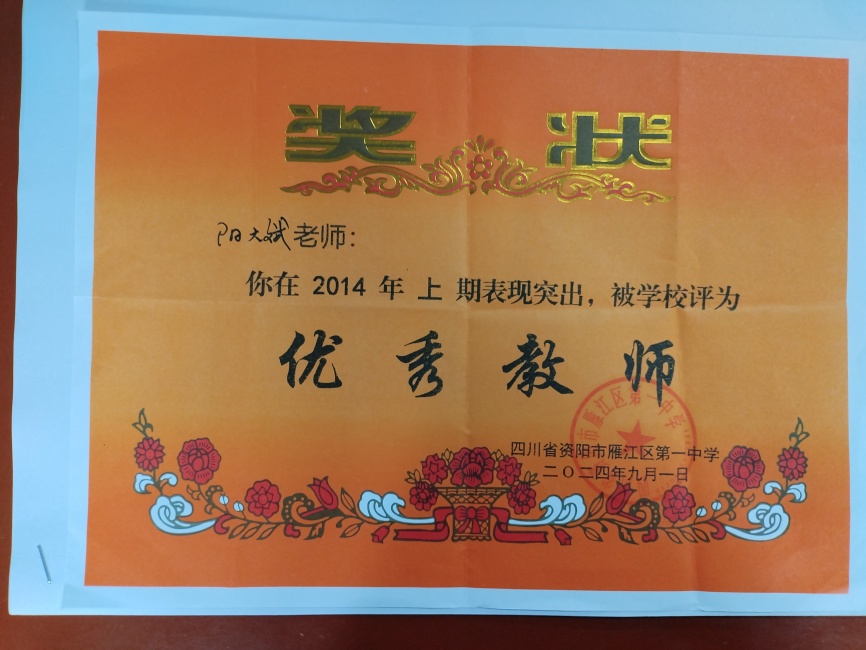 奖 状
阳大斌老师：
你在 2014 年 上 期表现突出，被学校评为
优 秀 教 师
四川省资阳市雁江区第一中学
二〇二四年九月一日
市雁江区第一中学